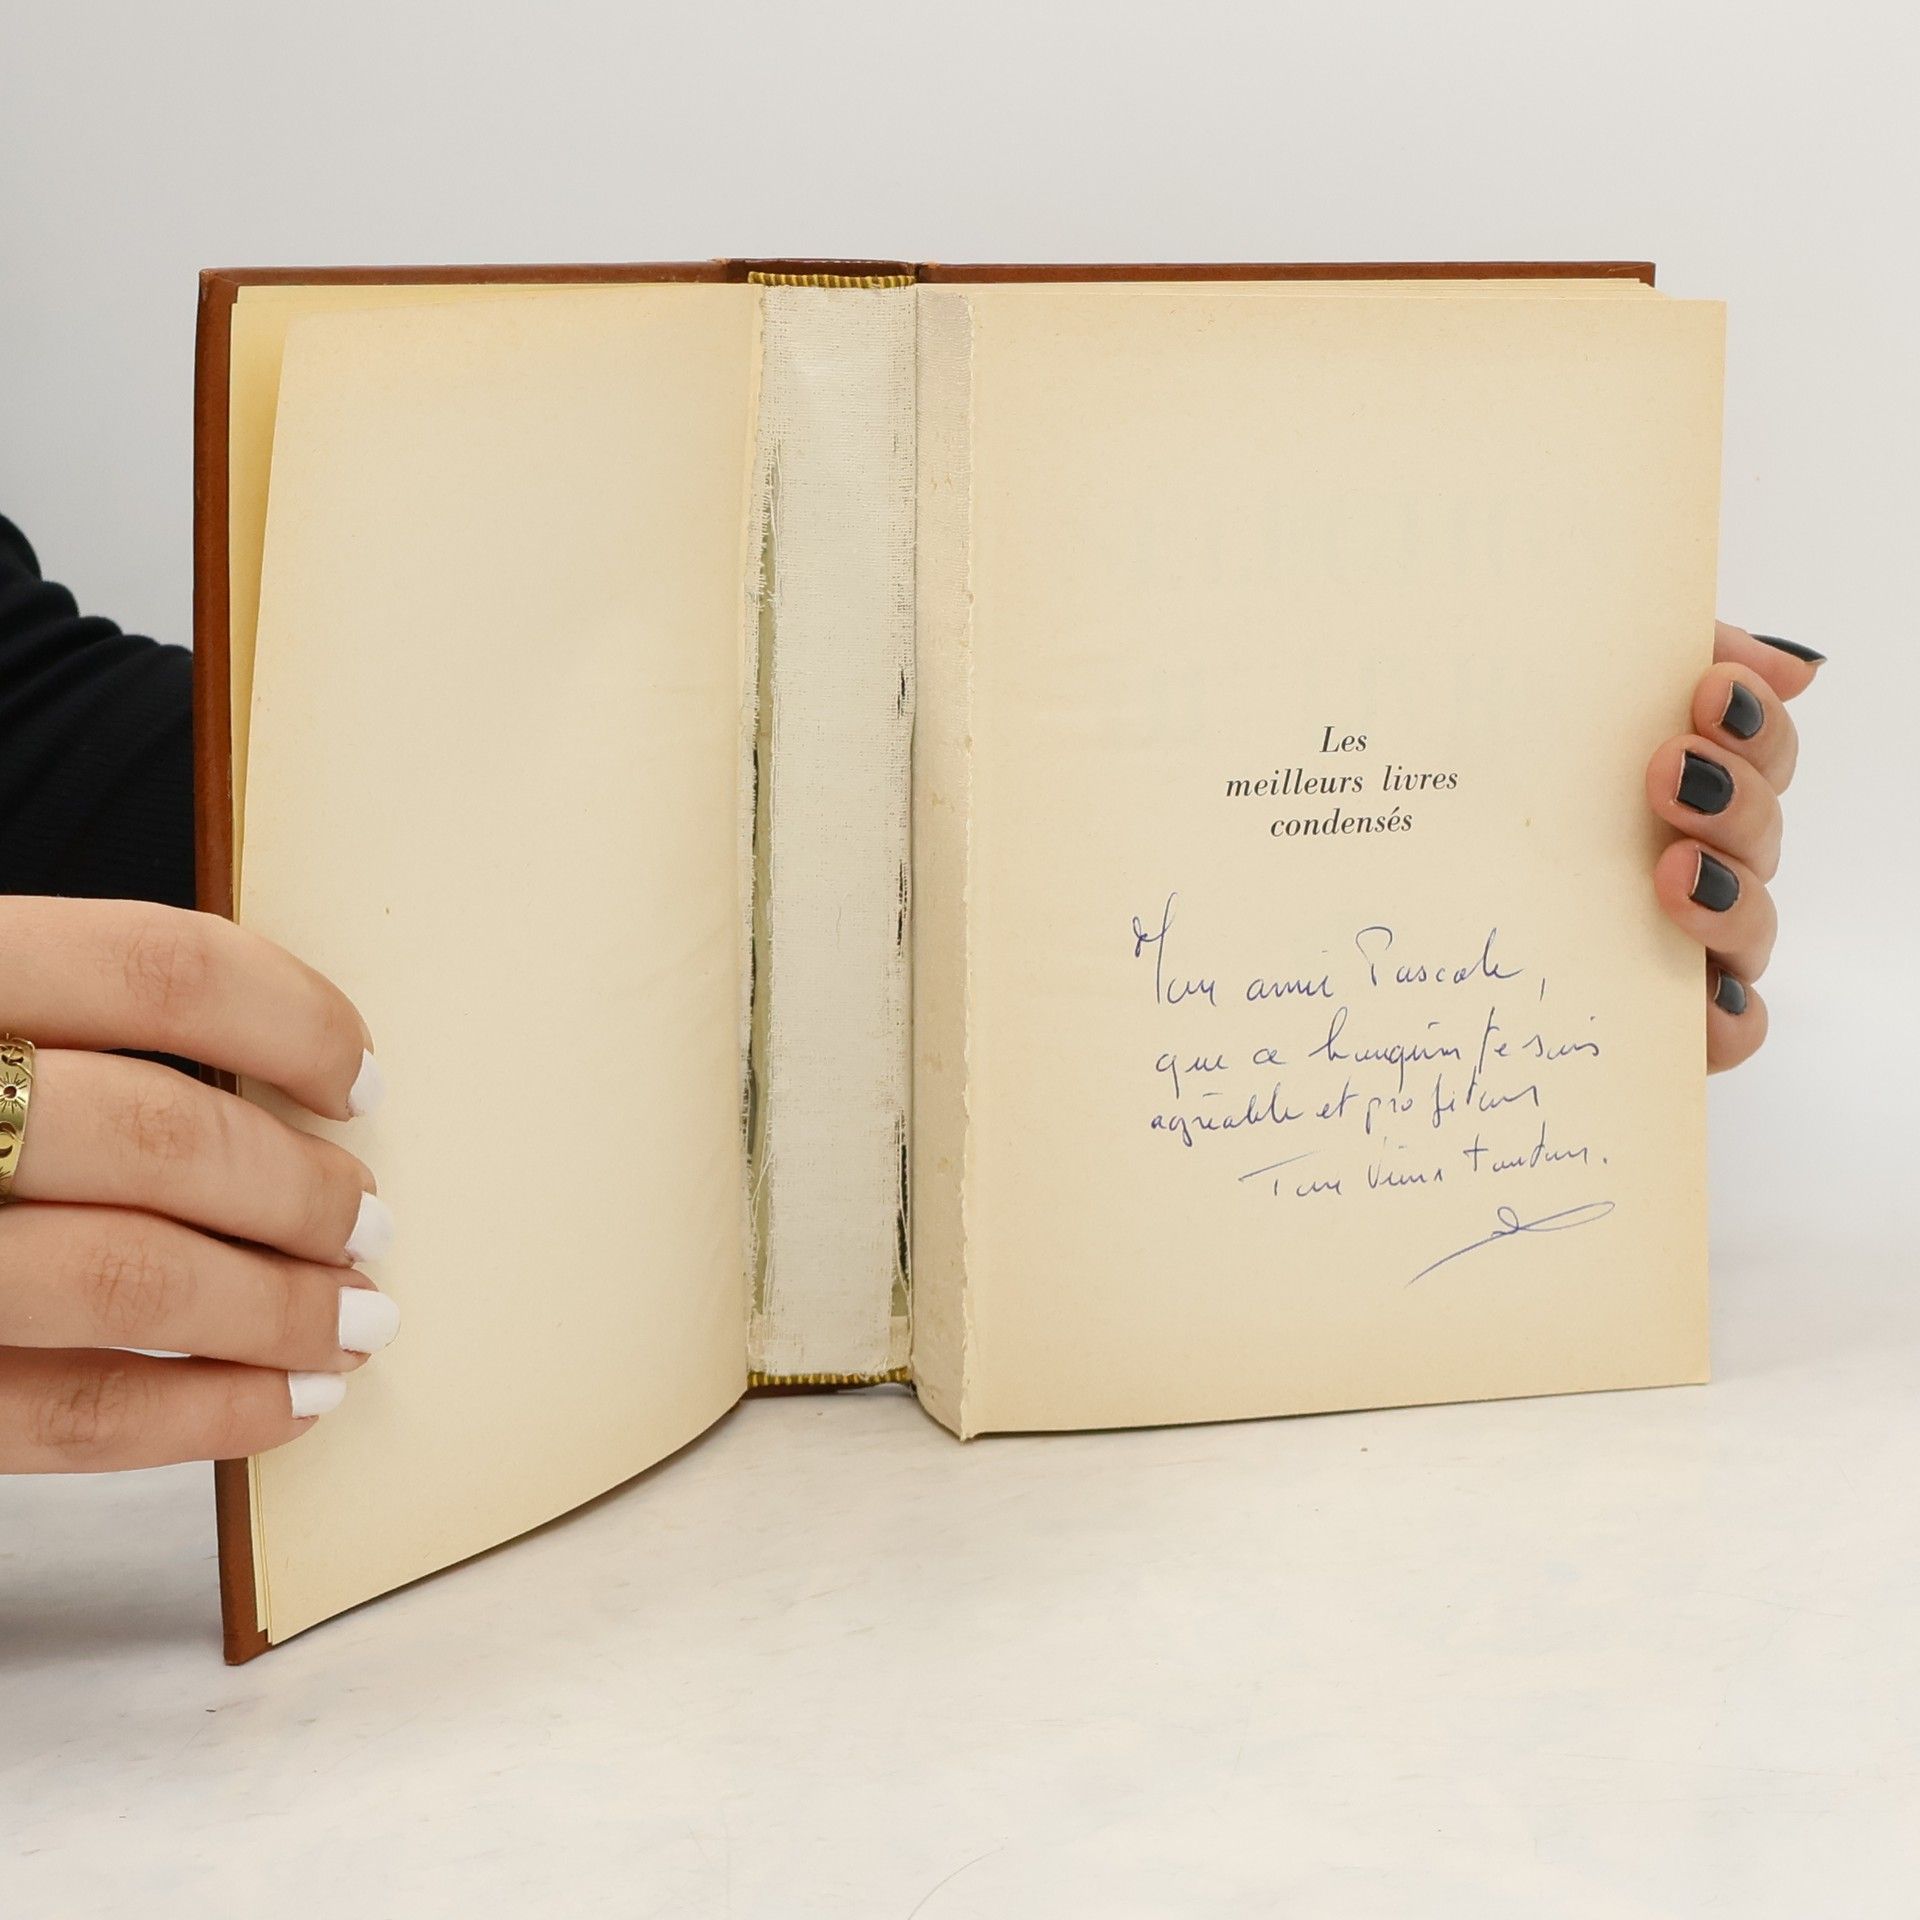 Les
meilleurs livres
condensés
Mon amie Pascale,
que ce bouquin te sois
agréable et profitans
Ton vieux tonton.